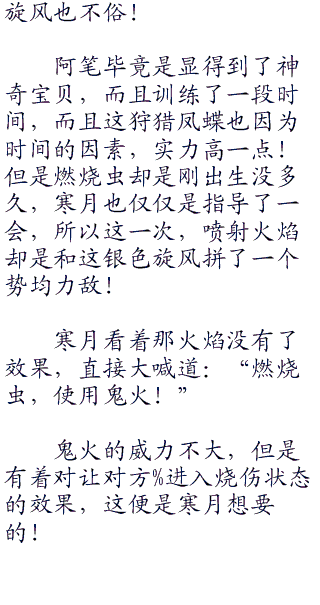 旋风也不俗！
阿笔毕竟是显得到了神
奇宝贝，而且训练了一段时
间，而且这狩猎凤蝶也因为
时间的因素，实力高一点！
但是燃烧虫却是刚出生没多
久，寒月也仅仅是指导了一
会，所以这一次，喷射火焰
却是和这银色旋风拼了一个
势均力敌！
寒月看着那火焰没有了
效果，直接大喊道：“燃烧
虫，使用鬼火！”
鬼火的威力不大，但是
有着对让对方%进入烧伤状态
的效果，这便是寒月想要
的！